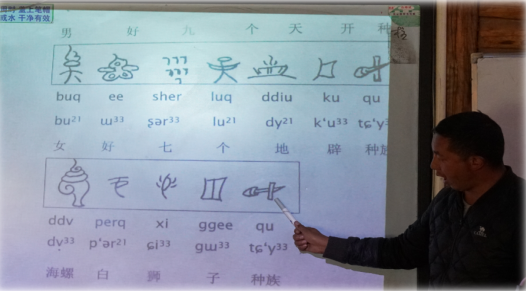 男 好 九 个 天 开 种
buq ee sher luq ddiu ku qu
bu²¹ ɯ³³ ʂər³³ lu²¹ dy²¹ k'u³³ tɕ'y³
女 好 七 个 地 辟 种族
ddv perq xi ggee qu
dv̩³³ p'ər²¹ ɕi³³ gɯ³³ tɕ'y³³
海螺 白 狮 子 种族